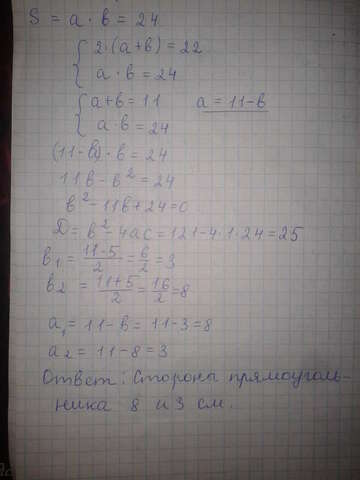 S = a · b = 24
{ 2·(a+b) = 22
a · b = 24
{ a+b = 11 a = 11-b
a · b = 24
(11-b)·b = 24
11b - b² = 24
b² - 11b + 24 = 0
D = b² - 4ac = 121 - 4·1·24 = 25
b₁ = (11-5)/2 = 6/2 = 3
b₂ = (11+5)/2 = 16/2 = 8
a₁ = 11 - b = 11 - 3 = 8
a₂ = 11 - 8 = 3
Ответ: Стороны прямоуголь-
ника 8 и 3 см.